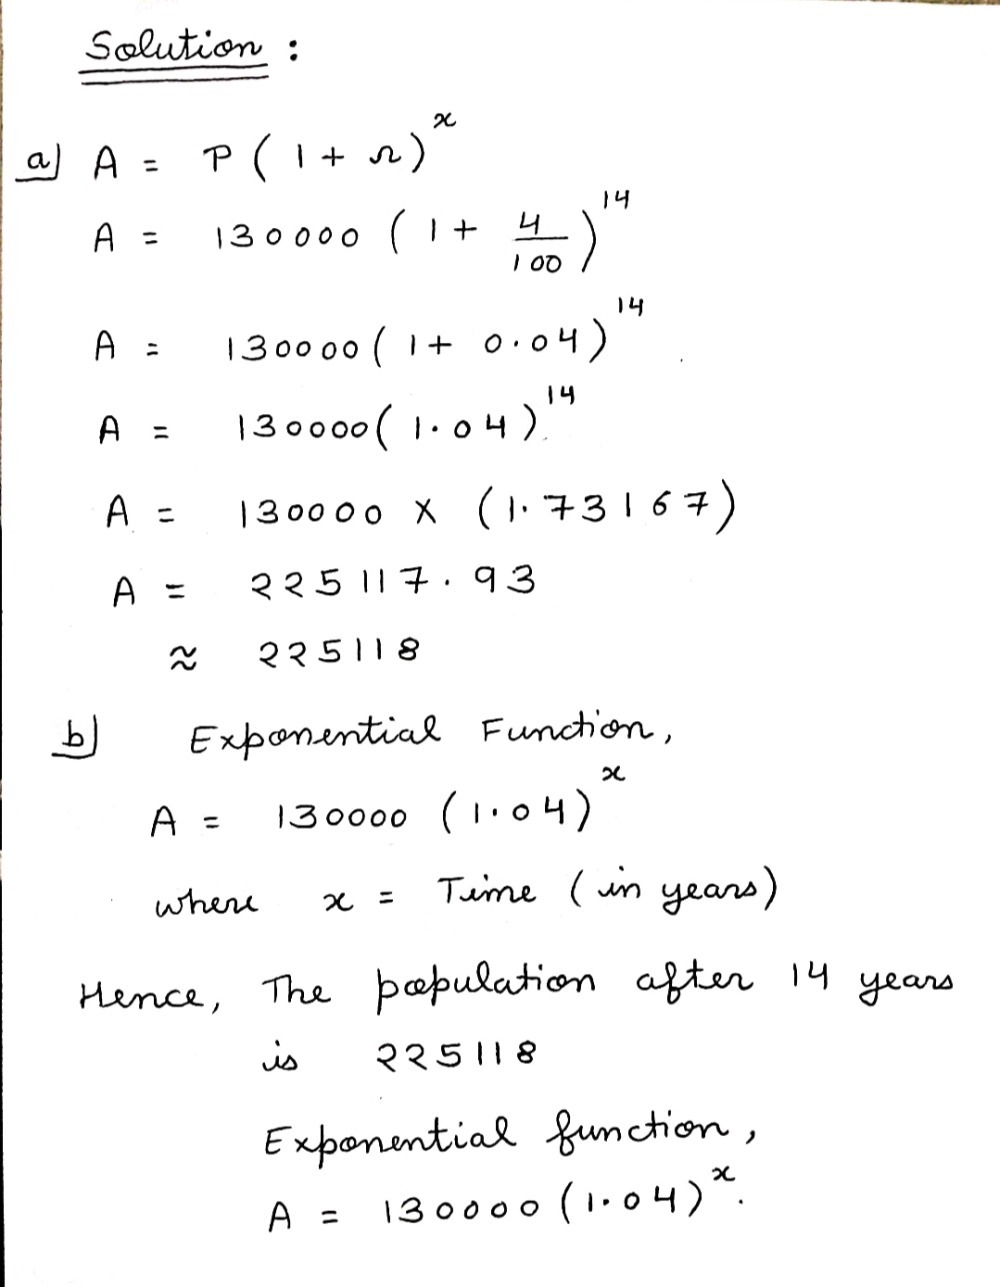 Solution :
a) A = P(1 + r)^x
A = 130000 (1 + 4/100)^14
A = 130000(1 + 0.04)^14
A = 130000(1.04)^14
A = 130000 × (1.73167)
A = 225117.93
≈ 225118
b) Exponential Function,
A = 130000 (1.04)^x
where x = Time (in years)
Hence, The population after 14 years
is 225118
Exponential function,
A = 130000(1.04)^x.